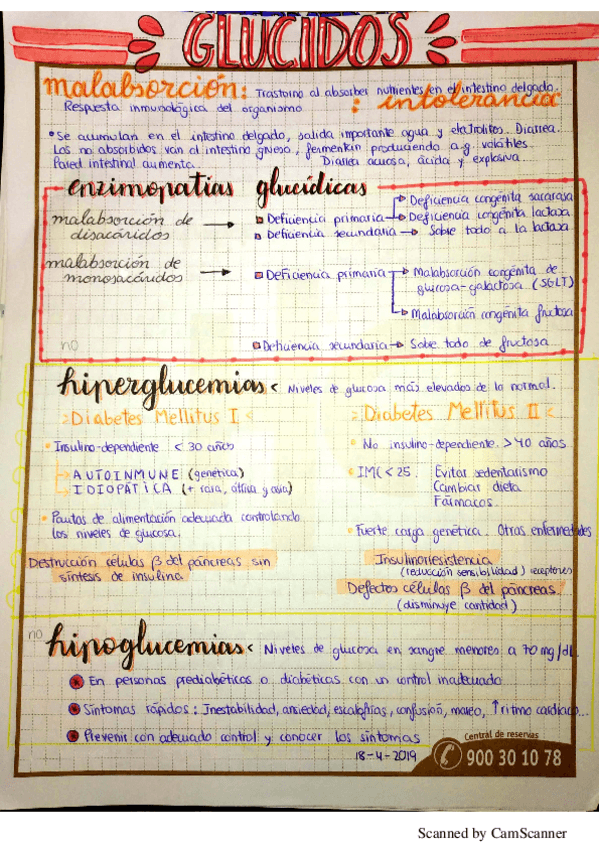 GLUCIDOS
malabsorción: Trastorno al absorber nutrientes en el intestino delgado.
Respuesta inmunológica del organismo : intolerancia
• Se acumulan en el intestino delgado, salida importante agua y electrolitos. Diarrea.
Los no absorbidos van al intestino grueso, fermentan produciendo a.g. volátiles.
Pared intestinal aumenta. Diarrea acuosa, ácida y explosiva...
enzimopatías glucídicas
malabsorción de disacáridos
Deficiencia primaria → Deficiencia congénita sacarasa
Deficiencia congénita lactasa
Deficiencia secundaria → Sobre todo a la lactasa
malabsorción de monosacáridos
Deficiencia primaria → Malabsorción congénita de
glucosa-galactosa (SGLT)
Malabsorción congénita fructosa
no
Deficiencia secundaria → Sobe todo de fructosa
hiperglucemias < Niveles de glucosa más elevados de lo normal.
Diabetes Mellitus I
Insulino-dependiente < 30 años
AUTOINMUNE (genética)
IDIOPÁTICA (+ rara, áfrica y asia)
Pautas de alimentación adecuada controlando
los niveles de glucosa.
Destrucción células β del páncreas sin
síntesis de insulina
Diabetes Mellitus II
No insulino-dependiente. > 40 años
IMC < 25. Evitar sedentarismo
Cambiar dieta
Fármacos.
Fuerte carga genética. Otras enfermedades
Insulinorresistencia
(reducción sensibilidad) receptores
Defectos células β del páncreas.
(disminuye cantidad)
no
hipoglucemias < Niveles de glucosa en sangre menores a 70 mg/dl.
En personas prediabéticas o diabéticas con un control inadecuado
Síntomas rápidos: Inestabilidad, ansiedad, escalofrías, confusión, mareo, ↑ ritmo cardiaco...
Prevenir con adecuado control y conocer los síntomas
18-4-2019
Central de reservas
900 30 10 78
Scanned by CamScanner